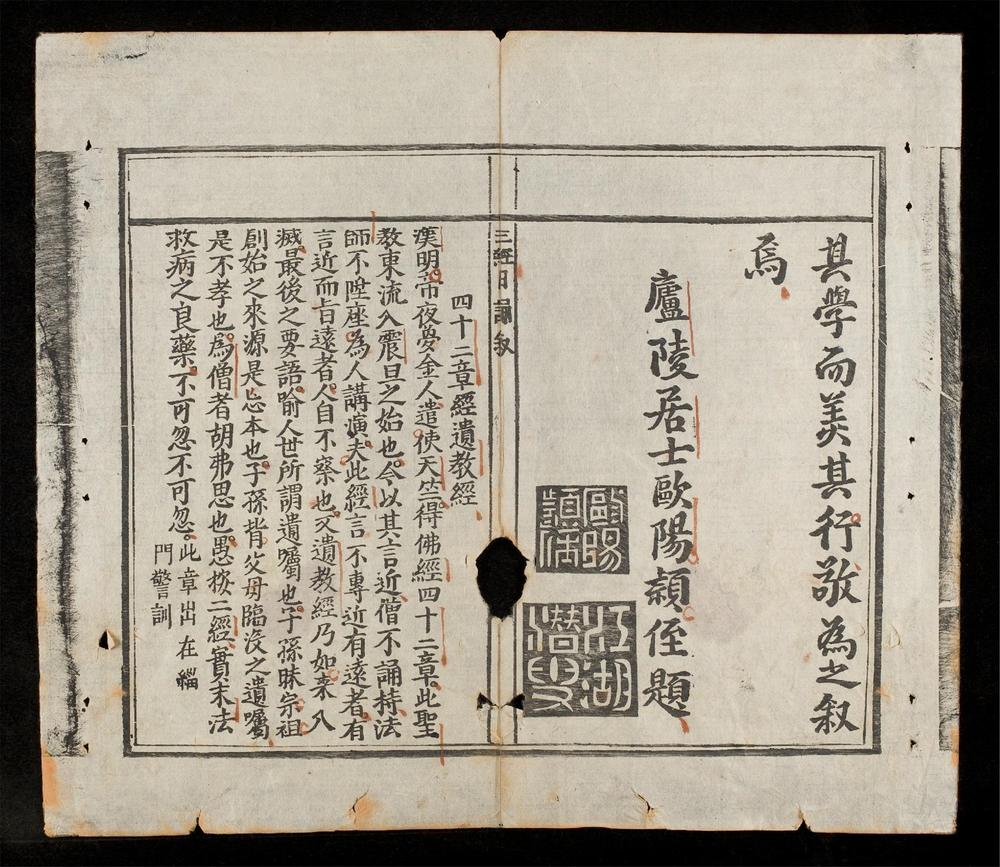 其學而羙其行敬為之叙
焉
廬陵居士歐陽頴侄題
江湖
三經日誦叙
四十二章經遺教經
漢明帝夜夢金人遣使天竺得佛經四十二章此聖
教東流入震旦之始也今以其言近僧不誦持法
師不陞座為人講演夫此經言不專近有遠者有
言近而旨遠者人自不察也又遺教經乃如來入
滅最後之要語喻人世所謂遺囑也子孫昧宗祖
創始之來源是忘本也子孫背父母臨沒之遺囑
是不孝也為僧者胡弗思也愚按二經實末法
救病之良藥不可忽不可忽此章出在緇
門警訓